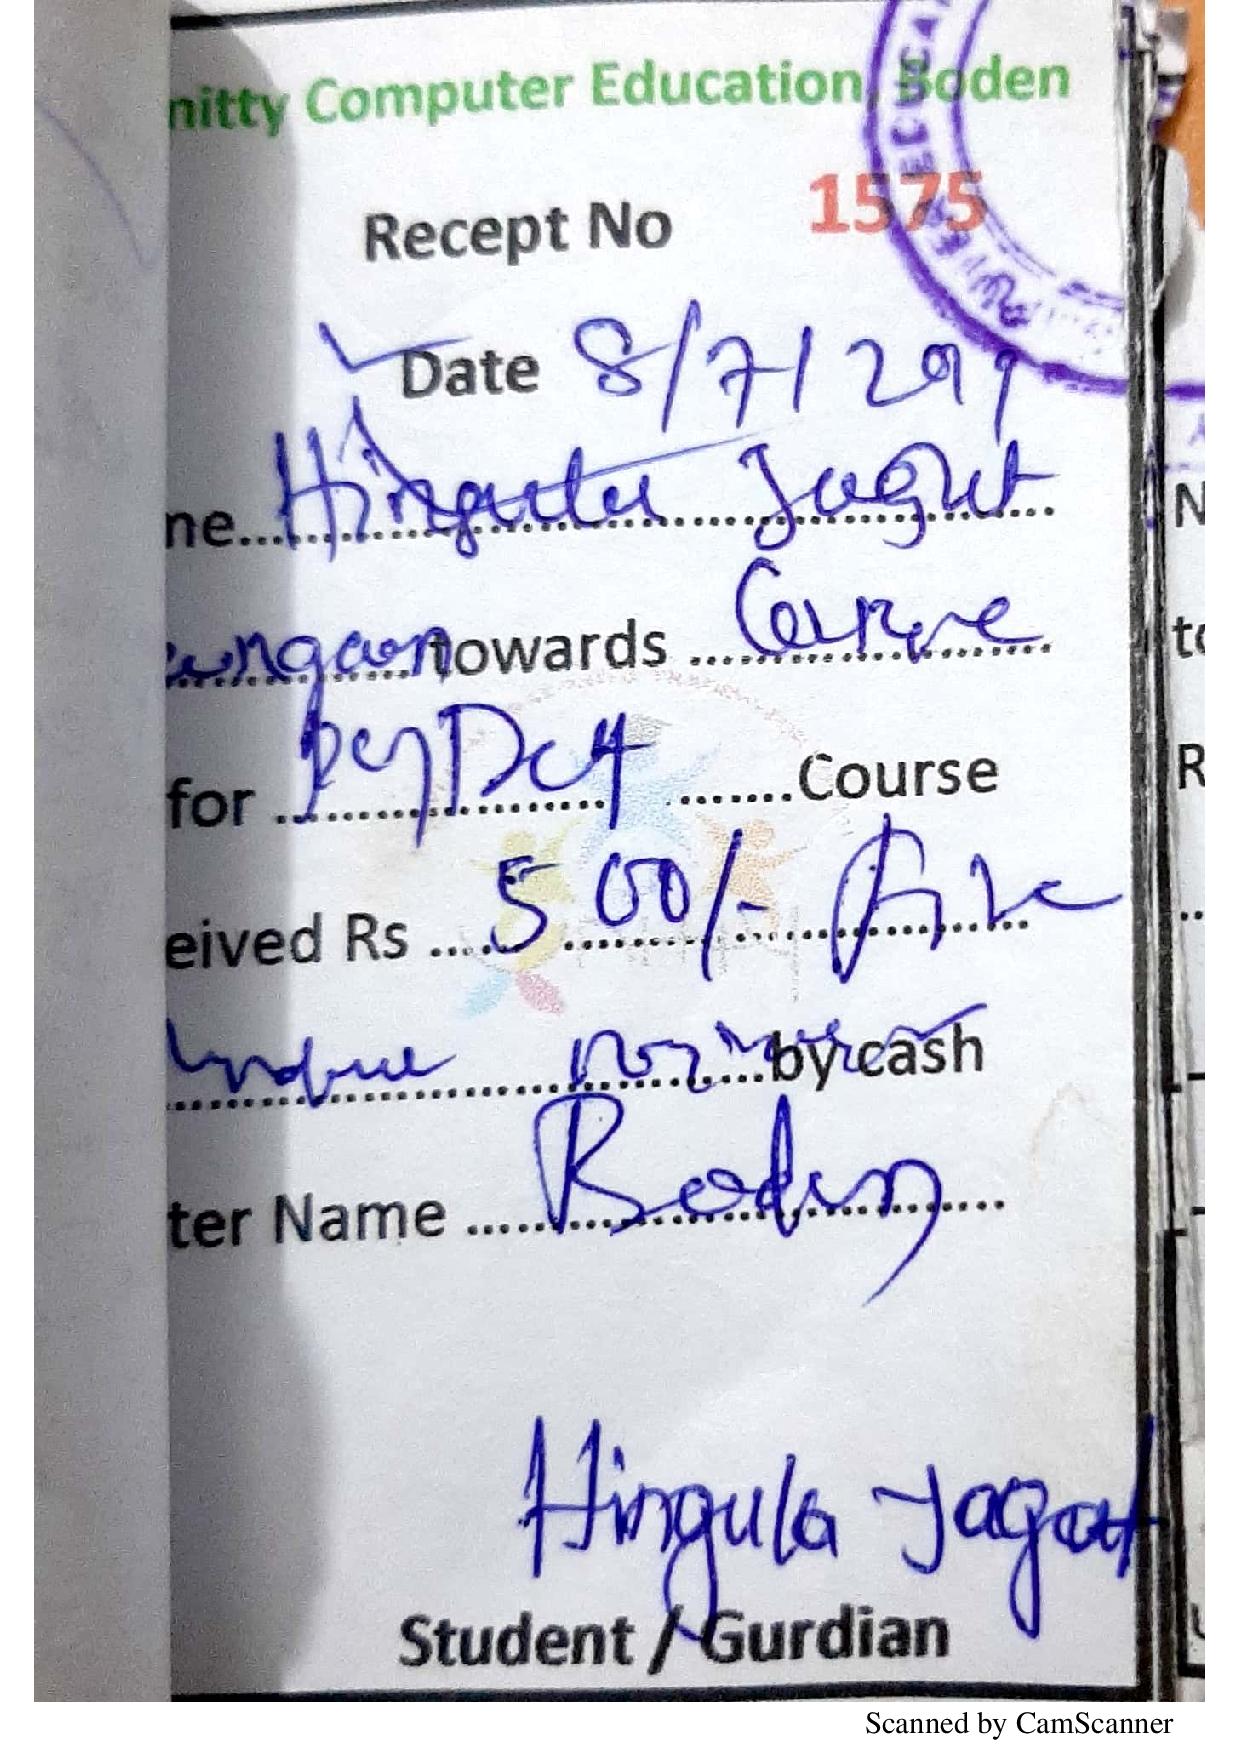 nitty Computer Education, Boden
Recept No 1575
Date 8/7/2019
ne.... Hingula Jagat
towards Course
for PGDCA Course
eived Rs 500/- Five
Hundred by cash
ter Name Boden
Hingula Jagat
Student / Gurdian
Scanned by CamScanner